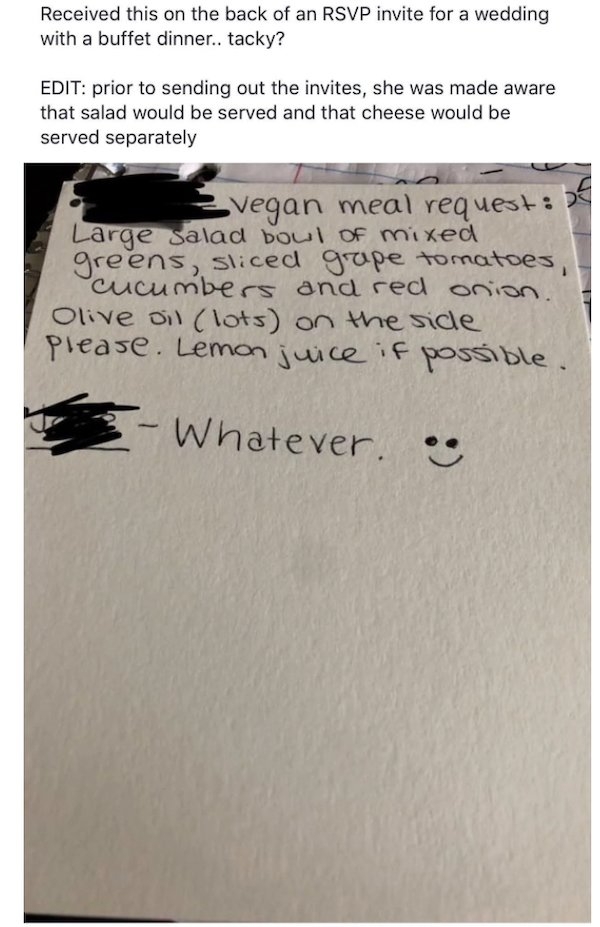 Received this on the back of an RSVP invite for a wedding
with a buffet dinner.. tacky?
EDIT: prior to sending out the invites, she was made aware
that salad would be served and that cheese would be
served separately
vegan meal request:
Large salad bowl of mixed
greens, sliced grape tomatoes,
cucumbers and red onion.
Olive oil (lots) on the side
please. Lemon juice if possible.
- Whatever. :)